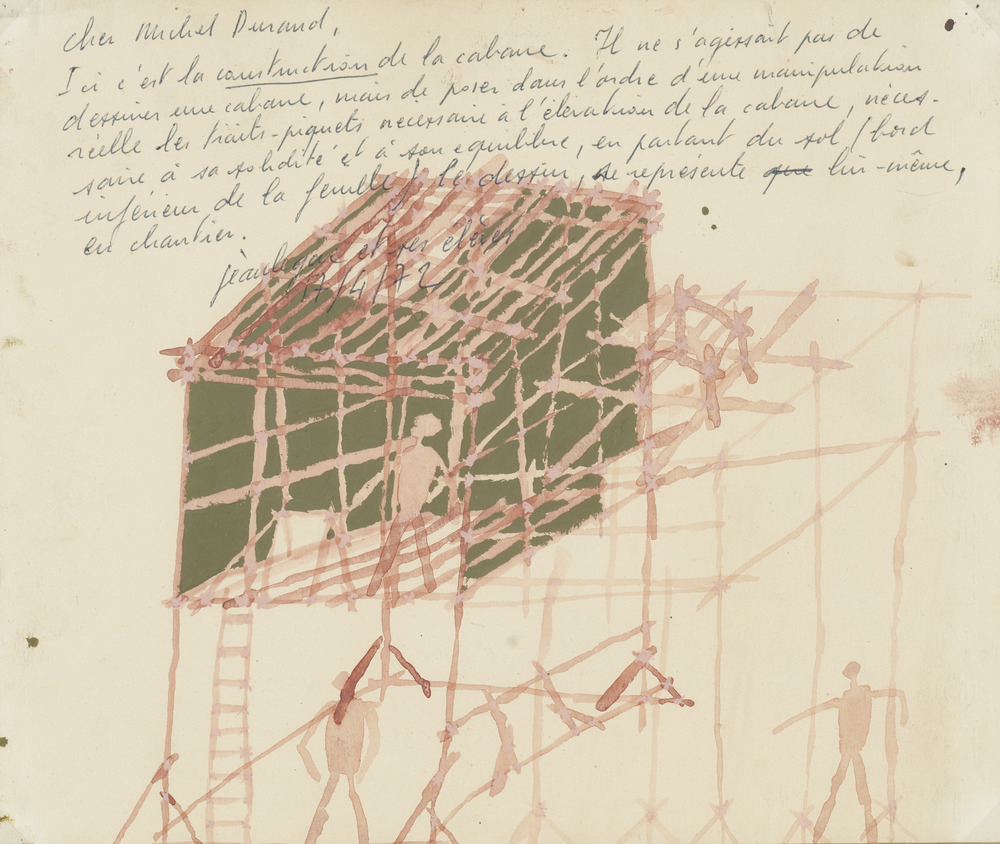 Cher Michel Durand,
Ici c'est la construction de la cabane. Il ne s'agissait pas de
dessiner une cabane, mais de poser dans l'ordre d'une manipulation
réelle les traits-piquets necessaire à l'élévation de la cabane, néces-
saire à sa solidité et à son equilibre, en partant du sol / bord
inférieur de la feuille / le dessin, se représente que lui-même,
en chantier.
et ses élèves
17/4/72